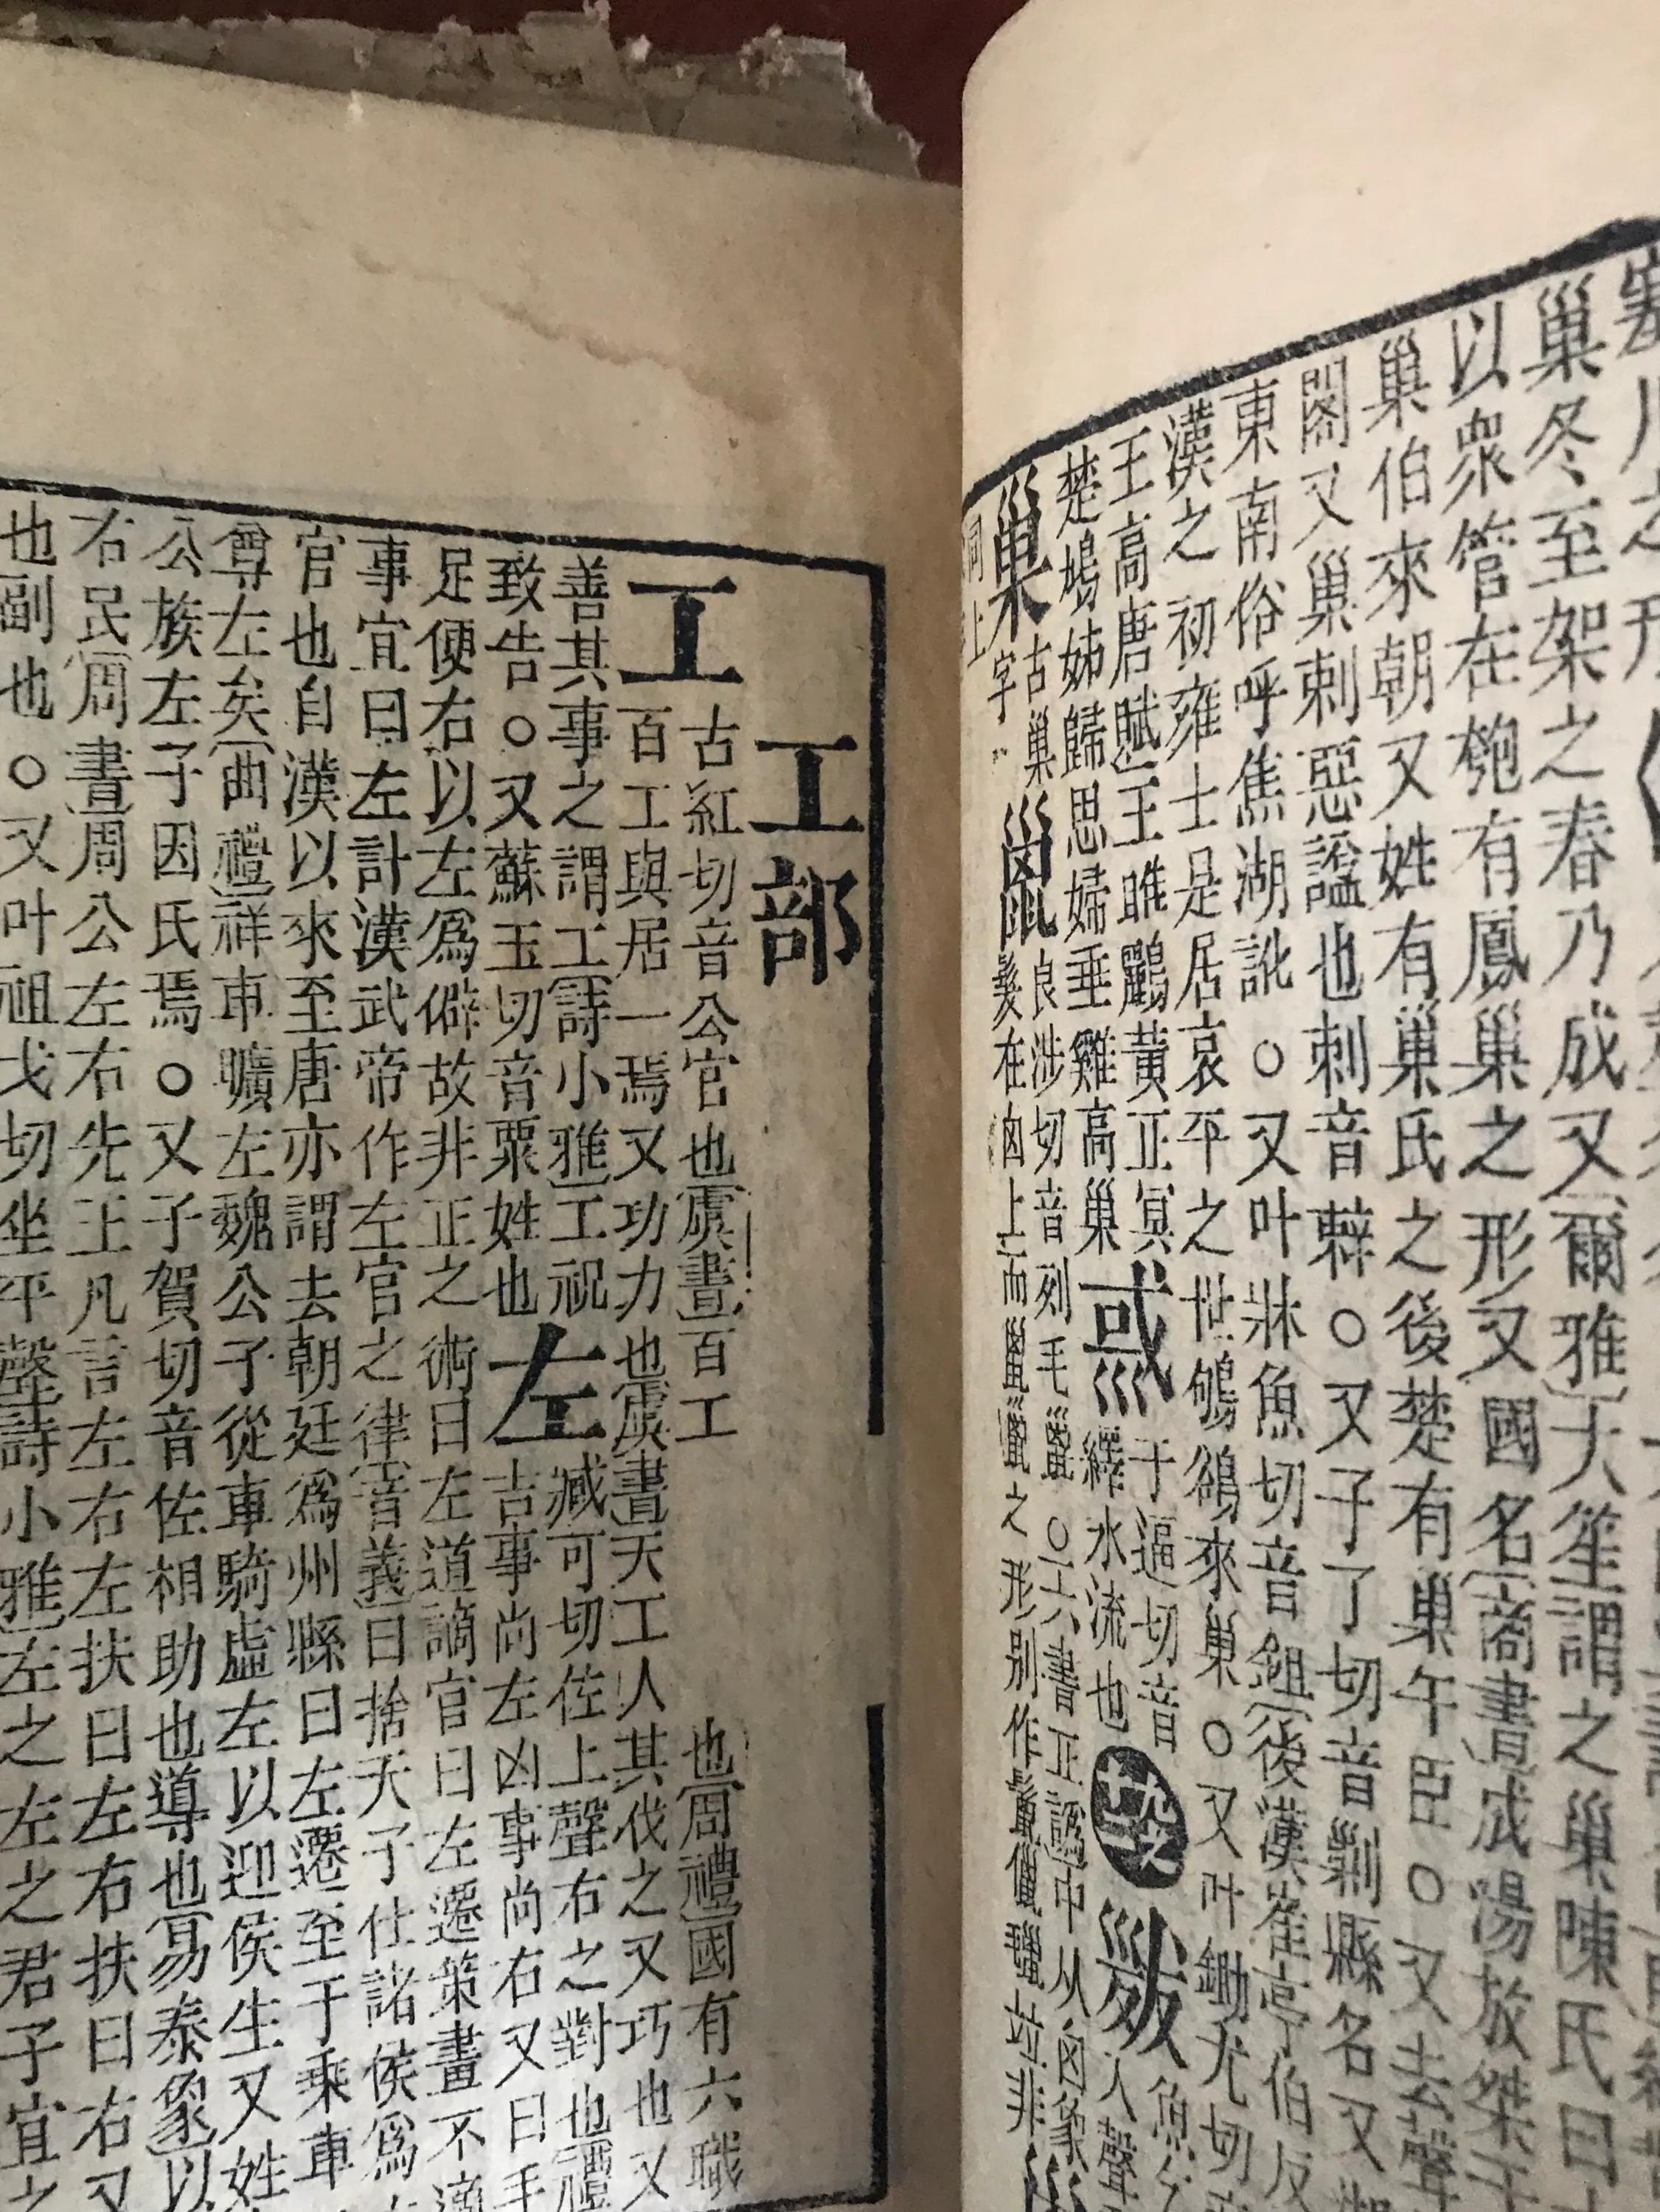 巢冬至架之春乃成又爾雅大笙謂之巢陳氏曰
以眾管在匏有鳳巢之形又國名商書成湯放桀于
巢伯來朝又姓有巢氏之後楚有巢午臣○又去聲
閣又巢剌惡諡也剌音辢○又子了切音剿縣名又
東南俗呼焦湖訛○又叶牀魚切音鉏後漢崔亭伯反
漢之初雍士是居哀平之世鴝鵒來巢○又叶鋤尤切
王高唐賦王雎鸝黃正冥
楚鳩姊歸思婦垂雞高巢
于逼切音
水流也
入聲
巢
古巢
字
良涉切音列毛○六書正譌中从囟象
髮在囟上而之形別作並非
同上
工部
工
古紅切音公官也虞書百工也周禮國有六職
百工與居一焉又功力也虞書天工人其伐之又巧也又
善其事之謂工詩小雅工祝
致告○又蘇玉切音粟姓也
左
臧可切佐上聲右之對也禮
吉事尚左凶事尚右又曰手
足便右以左為僻故非正之術曰左道謫官曰左遷策畫不適
事宜曰左計漢武帝作左官之律音義曰捨天子仕諸侯為
官也自漢以來至唐亦謂去朝廷為州縣曰左遷至于乘車
尊左矣曲禮祥車曠左魏公子從車騎虛左以迎侯生又姓
公族左子因氏焉○又子賀切音佐相助也導也易泰象以
右民周書周公左右先王凡言左右左扶曰左右扶曰右又
也副也○又叶祖戈切坐平聲詩小雅左之左之君子宜之